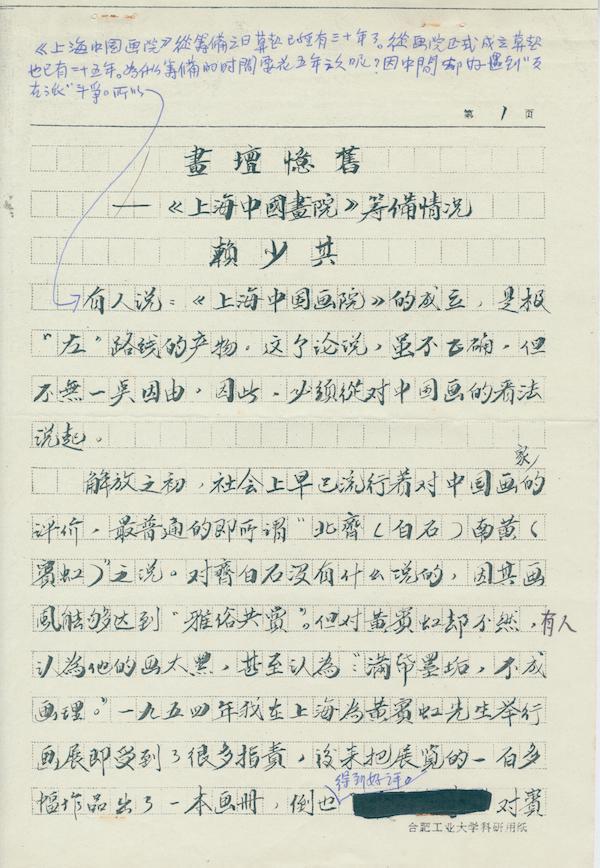 《上海中国画院》從筹備之日算起已經有三十年了。從画院正式成立算起
也已有二十五年。為什么筹備的时间要花五年之久呢？因中間却好遇到"反
右派"斗争。所以
第 1 页
畫壇憶舊
——《上海中國畫院》筹備情况
賴少其
有人说：《上海中国画院》的成立，是极
"左"路线的产物。这个论说，虽不正确，但
不無一吳因由，因此，必须從对中国画的看法
说起。
家
解放之初，社会上早已流行着对中国画的
评价，最普通的即所谓"北齊（白石）南黄（
賓虹）"之说。对齊白石没有什么说的，因其画
風能够达到"雅俗共賞"。但对黄賓虹却不然，有人
认為他的画太黑，甚至认為"滿帋墨垢，不成
画理。"一九五四年我在上海為黄賓虹先生举行
画展即受到了很多指責，後来把展览的一百多
幅作品出了一本画册，倒也 对賓
得到好评。
合肥工业大学科研用纸